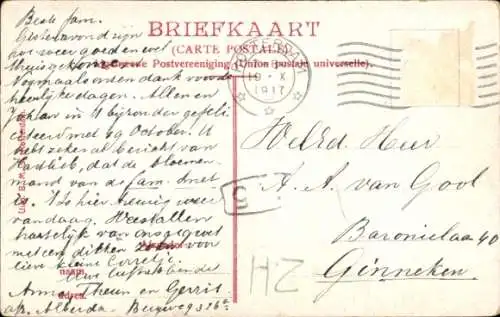 BRIEFKAART
(CARTE POSTALE)
Algemeene Postvereeniging (Union postale universelle).
AMSTERDAM
10 - X
1917
Beste fam.
Gisteravond zijn
we zeer goed en wel
thuisgekomen.
Nogmaals onzen dank voor de
heerlijke dagen. Allen en
in 't bijzonder gefeli-
citeerd met 19 October. U
hebt zeker al bericht van
dat de bloemen-
mand van de fam. Smet
is. 't Is hier heurig weer
vandaag. Weest allen
hartelijk van ons gegroet
met een dikken zoen voor
lieve kleine Correltje.
Uwe liefhebbende
Anna, Theun en Gerrit.
naam
adres
WelEd. Heer
A. A. van Gool
Baronielaan 40
Ginneken.
HZ